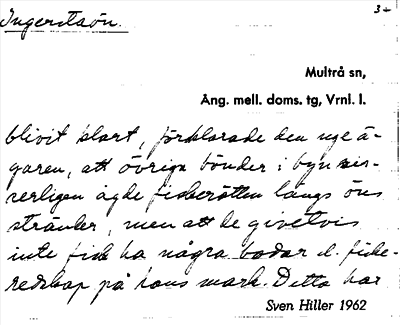 Ingerstaön.
3-
Multrå sn,
Ång. mell. doms. tg, Vrnl. l.
blivit klart, förklarade den nye ä-
garen, att övriga bönder i byn sin-
nerligen ägde fiskerätten längs öns
stränder, men att de givetvis
inte fick ha några bodar el. fiske-
redskap på hans mark. Detta har
Sven Hiller 1962